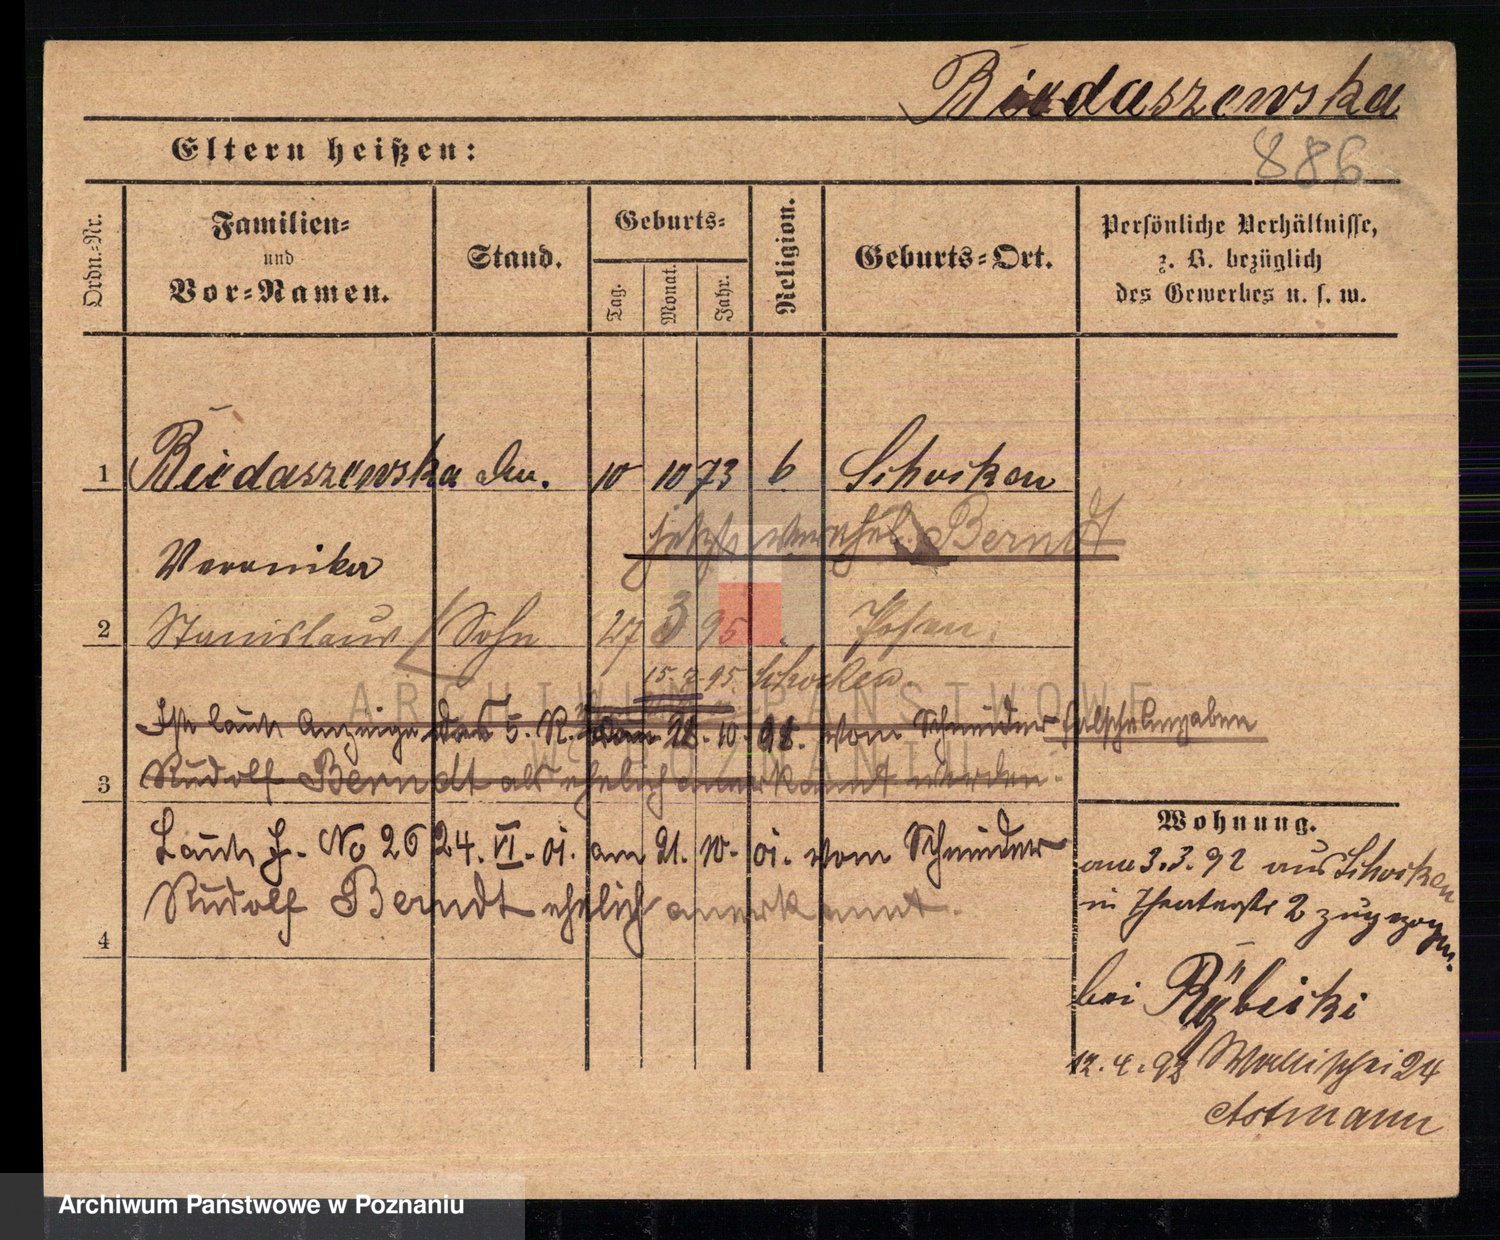 Biedaszewska
886
Eltern heißen:
Ordn.-Nr.
Familien-
und
Vor-Namen.
Stand.
Geburts-
Tag.
Monat.
Jahr.
Religion.
Geburts-Ort.
Persönliche Verhältnisse,
z. B. bezüglich
des Gewerbes u. s. w.
1 Biedaszewska 10 10 73 Schocken
jetzt verehel. Berndt
Veronika
2 Stanislaus Sohn 27 3 95 Posen.
15. 95. Schocken.
Ist laut Anzeige des 5. R. vom 28. 10. 98. vom Schneider falsche Angaben
3 Rudolf Berndt als ehelich anerkannt worden.
Laut J. No 26 24. VI. 01. am 21. 10. 01. vom Schneider
Rudolf Berndt ehelich anerkannt.
4
Wohnung.
am 3.3.92 aus Schocken
in Theaterstr 2 zugezogen.
bei Rybicki
12. 4. 92 Wallischei 24
Astmann
ARCHIWUM PAŃSTWOWE
W POZNANIU
Archiwum Państwowe w Poznaniu